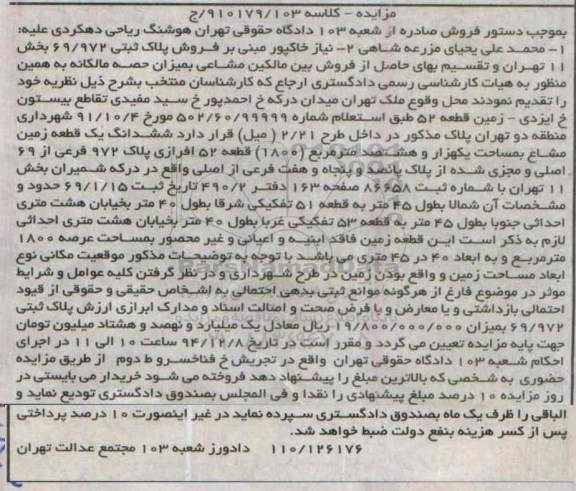 مزایده - کلاسه ۹۱۰۱۷۹/۱۰۳/ج
بموجب دستور فروش صادره از شعبه ۱۰۳ دادگاه حقوقی تهران هوشنگ ریاحی دهکردی علیه:
۱- محمد علی یحیای مزرعه شاهی ۲- نیاز خاکپور مبنی بر فروش پلاک ثبتی ۶۹/۹۷۲ بخش
۱۱ تهران و تقسیم بهای حاصل از فروش بین مالکین مشاعی بمیزان حصه مالکانه به همین
منظور به هیات کارشناسی رسمی دادگستری ارجاع که کارشناسان منتخب بشرح ذیل نظریه خود
را تقدیم نمودند محل وقوع ملک تهران میدان درکه خ احمدپور خ سید مفیدی تقاطع بیستون
خ ایزدی - زمین قطعه ۵۲ طبق استعلام شماره ۵۰۲/۶۰/۹۹۹۹۹ مورخ ۹۱/۱۰/۴ شهرداری
منطقه دو تهران پلاک مذکور در داخل طرح ۲/۲۱ (میل) قرار دارد ششدانگ یک قطعه زمین
مشاع بمساحت یکهزار و هشتصد مترمربع (۱۸۰۰) قطعه ۵۲ افرازی پلاک ۹۷۲ فرعی از ۶۹
اصلی و مجزی شده از پلاک پانصد و پنجاه و هفت فرعی از اصلی واقع در درکه شمیران بخش
۱۱ تهران با شماره ثبت ۸۶۶۵۸ صفحه ۱۶۳ دفتر ۴۹۰/۲ تاریخ ثبت ۶۹/۱/۱۵ حدود و
مشخصات آن شمالا بطول ۴۵ متر به قطعه ۵۱ تفکیکی شرقا بطول ۴۰ متر بخیابان هشت متری
احداثی جنوبا بطول ۴۵ متر به قطعه ۵۳ تفکیکی غربا بطول ۴۰ متر بخیابان هشت متری احداثی
لازم به ذکر است این قطعه زمین فاقد ابنیه و اعیانی و غیر محصور بمساحت عرصه ۱۸۰۰
مترمربع و به ابعاد ۴۰ در ۴۵ متری می باشد با توجه به توضیحات مذکور موقعیت مکانی نوع
ابعاد مساحت زمین و واقع بودن زمین در طرح شهرداری و در نظر گرفتن کلیه عوامل و شرایط
موثر در موضوع فارغ از هرگونه موانع ثبتی بدهی احتمالی به اشخاص حقیقی و حقوقی از قیود
احتمالی بازداشتی و یا معارض و با فرض صحت و اصالت اسناد و مدارک ابرازی ارزش پلاک ثبتی
۶۹/۹۷۲ بمیزان ۱۹/۸۰۰/۰۰۰/۰۰۰ ریال معادل یک میلیارد و نهصد و هشتاد میلیون تومان
جهت پایه مزایده تعیین می گردد و مقرر است در تاریخ ۹۴/۱۲/۸ ساعت ۱۰ الی ۱۱ در اجرای
احکام شعبه ۱۰۳ دادگاه حقوقی تهران واقع در تجریش خ فناخسرو ط دوم از طریق مزایده
حضوری به شخصی که بالاترین مبلغ را پیشنهاد دهد فروخته می شود خریدار می بایستی در
روز مزایده ۱۰ درصد مبلغ پیشنهادی را نقدا و فی المجلس بصندوق دادگستری تودیع نماید و
الباقی را ظرف یک ماه بصندوق دادگستری سپرده نماید در غیر اینصورت ۱۰ درصد پرداختی
پس از کسر هزینه بنفع دولت ضبط خواهد شد.
۱۱۰/۱۲۶۱۷۶ دادورز شعبه ۱۰۳ مجتمع عدالت تهران